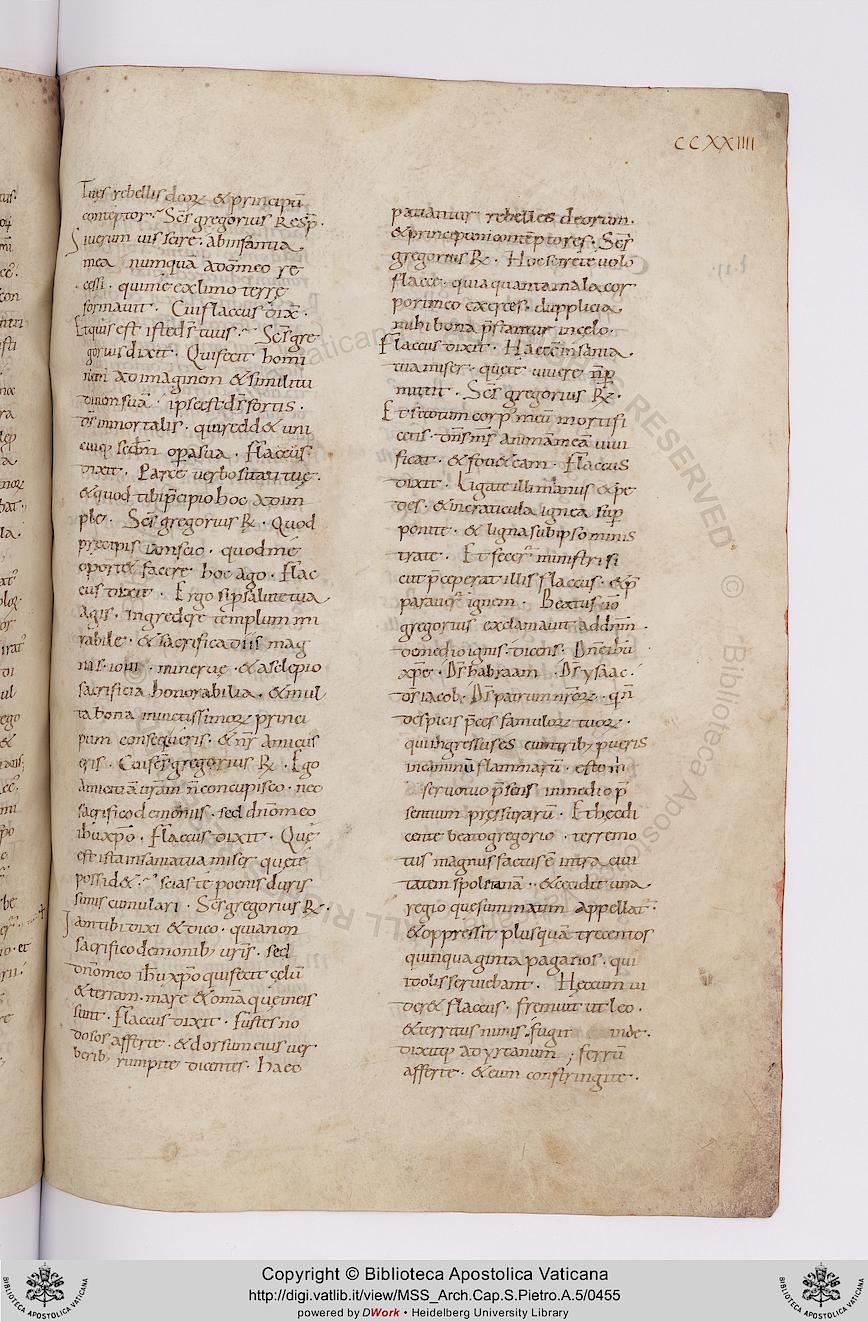 CCXXIIII
Tu es rebellis deorꝝ & principū
contēptor. Scs̄ gregorius Resp̄.
Si uerum uis scire. ab infantia
mea numquā a dō meo re
cessi. qui me ex limo terrę
formauit. Cui flaccus dix̄.
Et quis est iste ds̄ tuus. Scs̄ gre
gorius dixit. Qui fecit homi
nem ad imaginem & similitu
dinem suā. ipse est ds̄ fortis.
ds̄ inmortalis. qui redd& uni
cuiq; secdm̄ opera sua. Flaccus
dixit. Parce uerbositati tuę.
& quod tibi p̄cipio hoc adim
ple. Scs̄ gregorius R̄. Quod
pręcipis iam scio. quod me
oport& facere hoc ago. Flac
cus dixit. Ergo si p̄ salute tua
agis. ingredere templum mi
rabile. & sacrifica diis mag
nis. ioui. mineruę. & asclepio
sacrificia honorabilia. & mul
ta bona inuictissimorꝝ princi
pum consequeris. & nr̄ amicus
eris. Cui scs̄ gregorius R̄. Ego
amicitiā urām n̄ concupisco. nec
sacrifico demoniis. sed dn̄o meo
ihū xpō. Flaccus dixit. Quę
est ista insania tua miser quę te
possid&. scias te poenis duris
simis cumulari. Scs̄ gregorius R̄.
Iam tibi dixi & dico. quia non
sacrifico demonib; uris̄. sed
dn̄o meo ihū xpō qui fecit cęlū
& terram. mare & omā quę in eis
sunt. Flaccus dixit. Fustes no
dosos afferte. & dorsum eius uer
berib; rumpite dicentes. Haec
patiantur rebelles deorum.
& principum contēptores. Scs̄
gregorius R̄. Hoc scire te uolo
flacce. quia quanta mala cor
pori meo exerces. dupplicia
mihi bona p̄stantur in celo.
Flaccus dixit. Haec insania
tua miser. quę te uiuere n̄ p̄
mittit. Scs̄ gregorius R̄.
Et si totum corp; meū mortifi
ceris. dn̄s ms̄ animā meā uiui
ficat. & fou& eam. Flaccus
dixit. Ligate illi manus & pe
des. & in craticula ignea sup̄
ponite. & ligna sub ipso minis
trate. Et fecer̄ ministri si
cut p̄ceperat illis flaccus. & p̄
parauer̄ ignem. Beatus ū
gregorius exclamauit ad dn̄m
de medio ignis. dicens. Dn̄e ihū
xpe. Ds̄ habraam. Ds̄ ysaac.
ds̄ iacob. Ds̄ patrum nr̄orꝝ. q n̄
despicis p̄ces famulorꝝ tuorꝝ.
qui ingressus es cum trib; pueris
in caminū flammarū. esto m̄
seruo tuo p̄sens in medio p̄
sentium pressurarū. Et hęc di
cente beato gregorio. terremo
tus magnus factus ē intra ciui
tatem spoletanā. & cecidit una
regio que summatim appellat̄.
& oppressit plus quā trecentos
quinquaginta paganos. qui
idolis seruiebant. Hęc cum ui
der& flaccus. fremuit ut leo.
& territus nimis. fugit inde.
dixitq; ad yrcanum; ferrū
afferte. & eum constringite.
Copyright © Biblioteca Apostolica Vaticana
http://digi.vatlib.it/view/MSS_Arch.Cap.S.Pietro.A.5/0455
powered by DWork • Heidelberg University Library